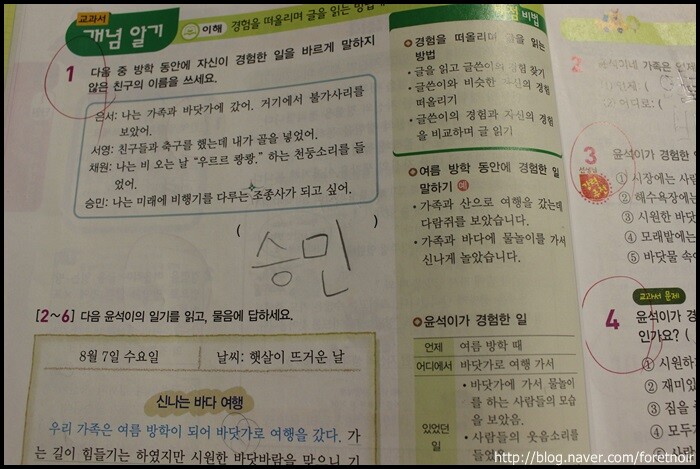 교과서
개념 알기
이해 경험을 떠올리며 글을 읽는 방법
1 다음 중 방학 동안에 자신이 경험한 일을 바르게 말하지
않은 친구의 이름을 쓰세요.
은서: 나는 가족과 바닷가에 갔어. 거기에서 불가사리를
보았어.
서영: 친구들과 축구를 했는데 내가 골을 넣었어.
채원: 나는 비 오는 날 “우르르 쾅쾅.” 하는 천둥소리를 들
었어.
승민: 나는 미래에 비행기를 다루는 조종사가 되고 싶어.
( 승민 )
[2~6] 다음 윤석이의 일기를 읽고, 물음에 답하세요.
8월 7일 수요일 날씨: 햇살이 뜨거운 날
신나는 바다 여행
우리 가족은 여름 방학이 되어 바닷가로 여행을 갔다. 가
는 길이 힘들기는 하였지만 시원한 바닷바람을 맞으니 기
비법
경험을 떠올리며 글을 읽는
방법
• 글을 읽고 글쓴이의 경험 찾기
• 글쓴이와 비슷한 자신의 경험
떠올리기
• 글쓴이의 경험과 자신의 경험
을 비교하며 글 읽기
여름 방학 동안에 경험한 일
말하기 예
• 가족과 산으로 여행을 갔는데
다람쥐를 보았습니다.
• 가족과 바다에 물놀이를 가서
신나게 놀았습니다.
윤석이가 경험한 일
언제 여름 방학 때
어디에서 바닷가로 여행 가서
있었던
일
• 바닷가에 가서 물놀이
를 하는 사람들의 모습
을 보았음.
• 사람들의 웃음소리를
2 윤석이네 가족은 언제
3 윤석이가 경험한
① 시장에는 사람
② 해수욕장에는
③ 시원한 바닷
④ 모래밭에는
⑤ 바닷물 속
교과서 문제
4 윤석이가 경
인가요? (
① 시원하
② 재미있
③ 짐을
④ 모두
http://blog.naver.com/foretnoir